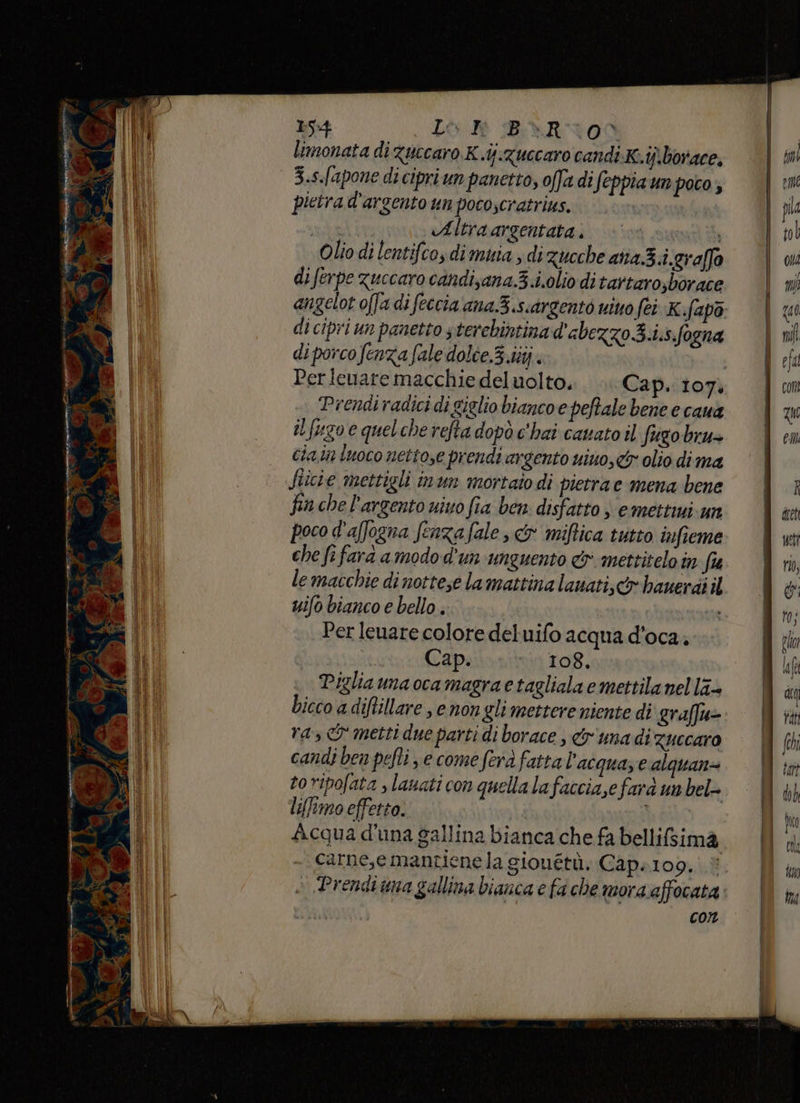 154 LIBRO
limonata di zuccaro K.ij.zuccaro candi K.ij.borace,
Ʒ.s.ſapone di cipri un panetto, oſſa di ſeppia un poco,
pietra d'argento un poco,cratrius.
Altra argentata.
Olio di lentiſco, di muia, di zucche ana.Ʒ.i.graſſo
di ſerpe zuccaro candi,ana.Ʒ.i.olio di tartaro,borace
angelot oſſa di feccia ana.Ʒ.s.argento uiuo ſei K.ſapō
di cipri un panetto, terebintina d'abezzo.Ʒ.i.s.ſogna
di porco ſenza ſale dolce.Ʒ.iiij.
Per leuare macchie del uolto. Cap. 107.
Prendi radici di giglio bianco e peſtale bene e caua
il ſugo e quel che reſta dopò c'hai cauato il ſugo bru-
cia in luoco netto,e prendi argento uiuo,& olio di ma
ſtice mettigli in un mortaio di pietra e mena bene
fin che l'argento uiuo ſia ben disfatto, e mettiui un
poco d'aſſogna ſenza ſale, & miſtica tutto inſieme
che ſi farà a modo d'un unguento & mettitelo in ſu
le macchie di notte,e la mattina lauati,& hauerai il
uiſo bianco e bello.
Per leuare colore del uiſo acqua d'oca.
Cap. 108.
Piglia una oca magra e tagliala e mettila nel lā-
bicco a diſtillare, e non gli mettere niente di graſſu-
ra, & metti due parti di borace, & una di zuccaro
candi ben peſti, e come ſerà fatta l'acqua, e alquan-
to ripoſata, lauati con quella la faccia,e farà un bel-
liſſimo effetto.
Acqua d'una gallina bianca che fa belliſsima
carne,e mantiene la giouētù. Cap. 109.
Prendi una gallina bianca e fa che mora affocata
con